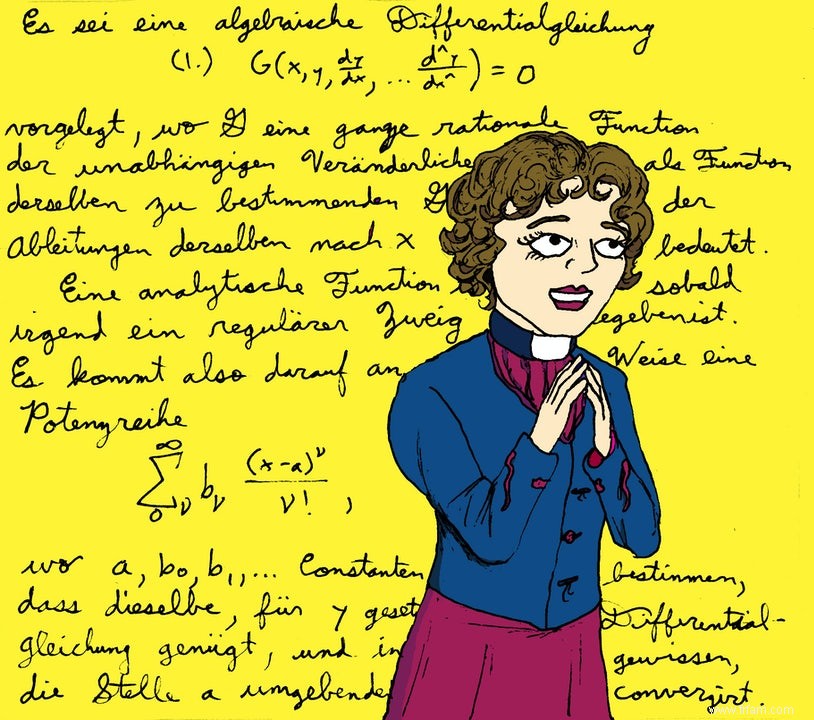 Es sei eine algebraische Differentialgleichung
(1.) G(x, y, dy/dx, ... dⁿy/dxⁿ) = 0
vorgelegt, wo G eine ganze rationale Function
der unabhängigen Veränderliche als Function
derselben zu bestimmenden G der
Ableitungen derselben nach x bedeutet.
Eine analytische Function sobald
irgend ein regulärer Zweig egebenist.
Es kommt also darauf an, Weise eine
Potenzreihe
∞ ∑ 0 ν b_ν (x-a)^ν / ν! ,
wo a, b₀, b₁, ... Constanten bestimmen,
dass dieselbe, für y geset Differential-
gleichung genügt, und in gewissen,
die Stelle a umgebende convergirt.